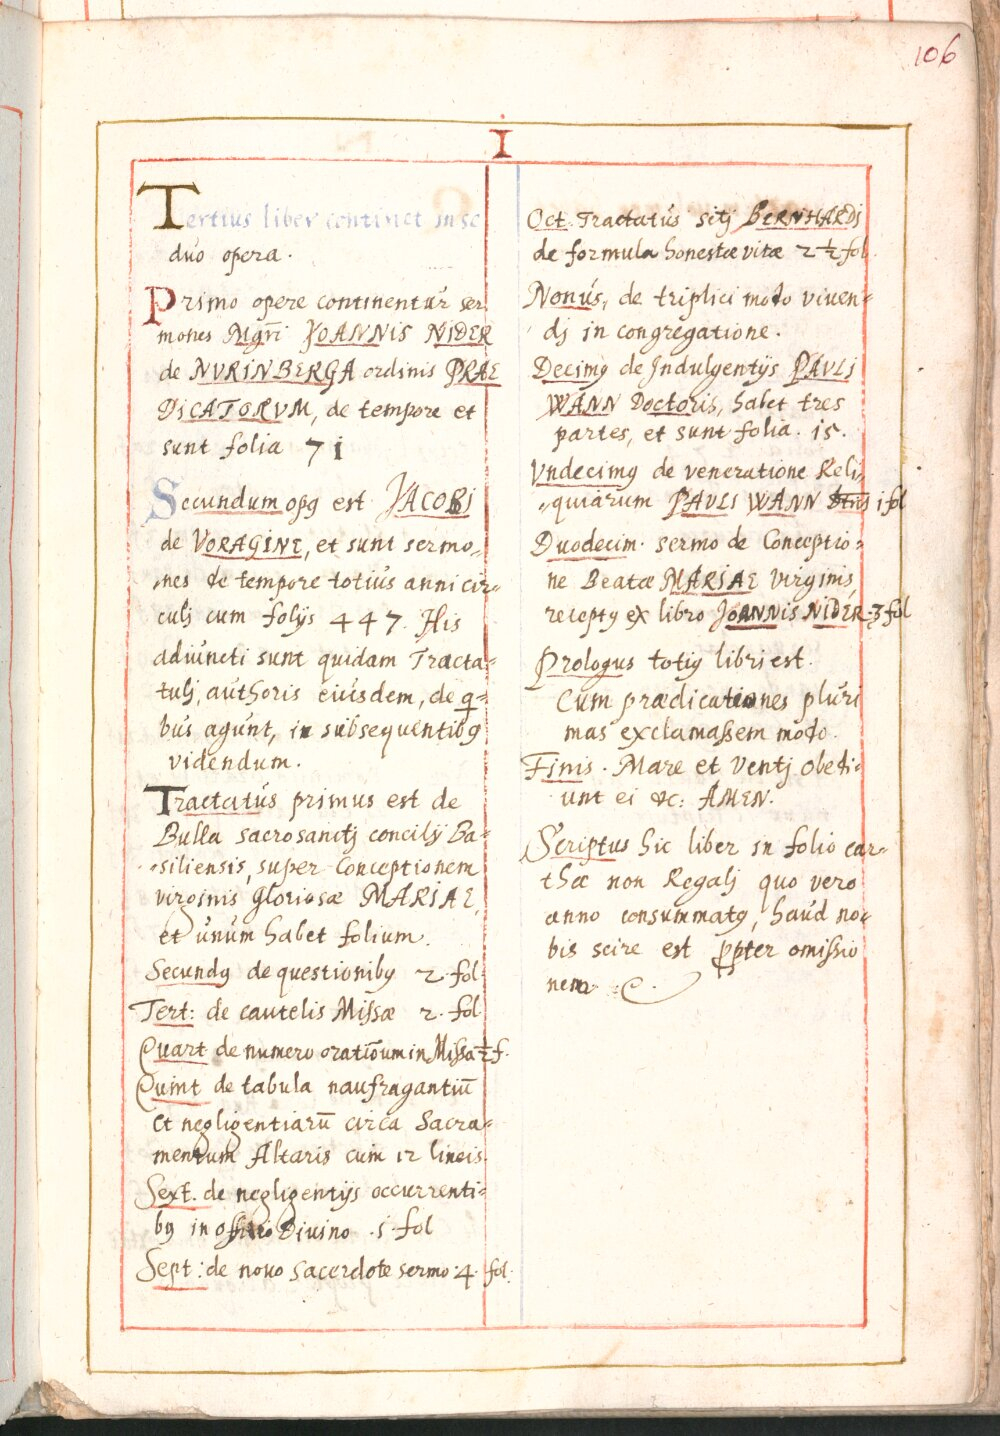 106
I
Tertius liber continet in se
duo opera.
Primo opere continentur ser
mones Mgri JOANNIS NIDER
de NURINBERGA ordinis PRAE
DICATORVM, de tempore et
sunt folia 71
Secundum opg est JACOBI
de VORAGINE, et sunt sermo„
„nes de tempore totius anni cir„
culj cum folijs 447. His
adiuncti sunt quidam Tracta=
tulj, authoris eiusdem, de q=
bus agunt, in subsequentibg
videndum.
Tractatus primus est de
Bulla sacrosanctj concilij Ba=
„siliensis, super Conceptionem
virginis Gloriosæ MARIAE,
et unum habet folium.
Secundg de questionibg 2. fol
Tert: de cautelis Missæ 2. fol
Quart de numero orationum in Missa ½ f.
Quint de tabula naufragantiū
et negligentiarū circa Sacra=
mentum Altaris cum 12 lineis.
Sext. de negligentijs occurrenti=
bg in officio Divino .1. fol
Sept: de novo sacerdote sermo: 4. fol.
Oct. Tractatus sctj BERNHARDj
de formula honestæ vitæ 2 ½ fol.
Nonus, de triplici modo viven=
dj in congregatione.
Decimg de Indulgentijs PAVLj
WANN Doctoris, habet tres
partes, et sunt folia. 15.
Vndecimg de veneratione Reli„
„quiarum PAVLI WANN 1 fol
Duodecim. sermo de Conceptio=
ne Beatæ MARIAE virginis,
receptg ex libro JOANNIS NIDER. 3 fol
Prologus totig libri est.
Cum prædicationes pluri
mas exclamassem modo.
Finis. Mare et Ventj obedi=
unt ei &c: AMEN.
Scriptus hic liber in folio car=
thæ non Regalj quo vero
anno consummatg, haud no=
bis scire est ppter omissio
nem